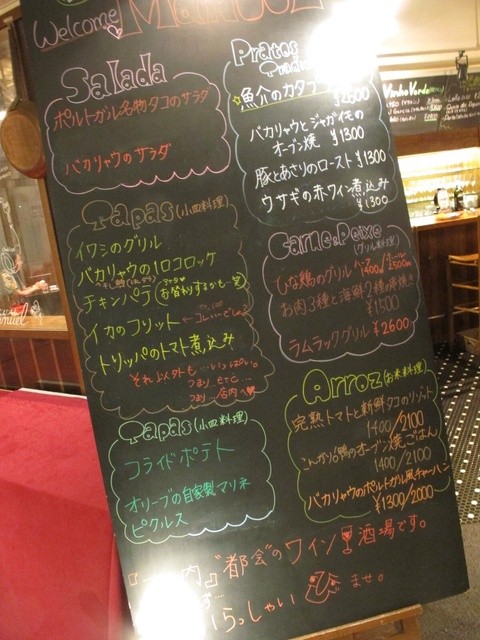 Welcome
Salada
ポルトガル名物タコのサラダ
バカリャウのサラダ
Tapas (小皿料理)
イワシのグリル
バカリャウの1口コロッケ
チキンパテ
イカのフリット
トリッパのトマト煮込み
それ以外も…いっぱい。
Tapas (小皿料理)
フライドポテト
オリーブの自家製マリネ
ピクルス
Pratos
魚介のカタプ
¥2600
バカリャウとジャガイモの
オーブン焼 ¥1300
豚とあさりのロースト ¥1300
ウサギの赤ワイン煮込み
¥1300
Carne e Peixe
(グリル料理)
ひな鶏のグリル
お肉3種と海鮮2種の串焼き
¥1500
ラムラックグリル ¥2600
Arroz (お米料理)
完熟トマトと新鮮タコのリゾット
1400/2100
こんがり鴨のオーブン焼ごはん
1400/2100
バカリャウのポルトガル風チャーハン
¥1300/2000
"都会"のワイン酒場です。
らっしゃい ませ。
Vinho Verde